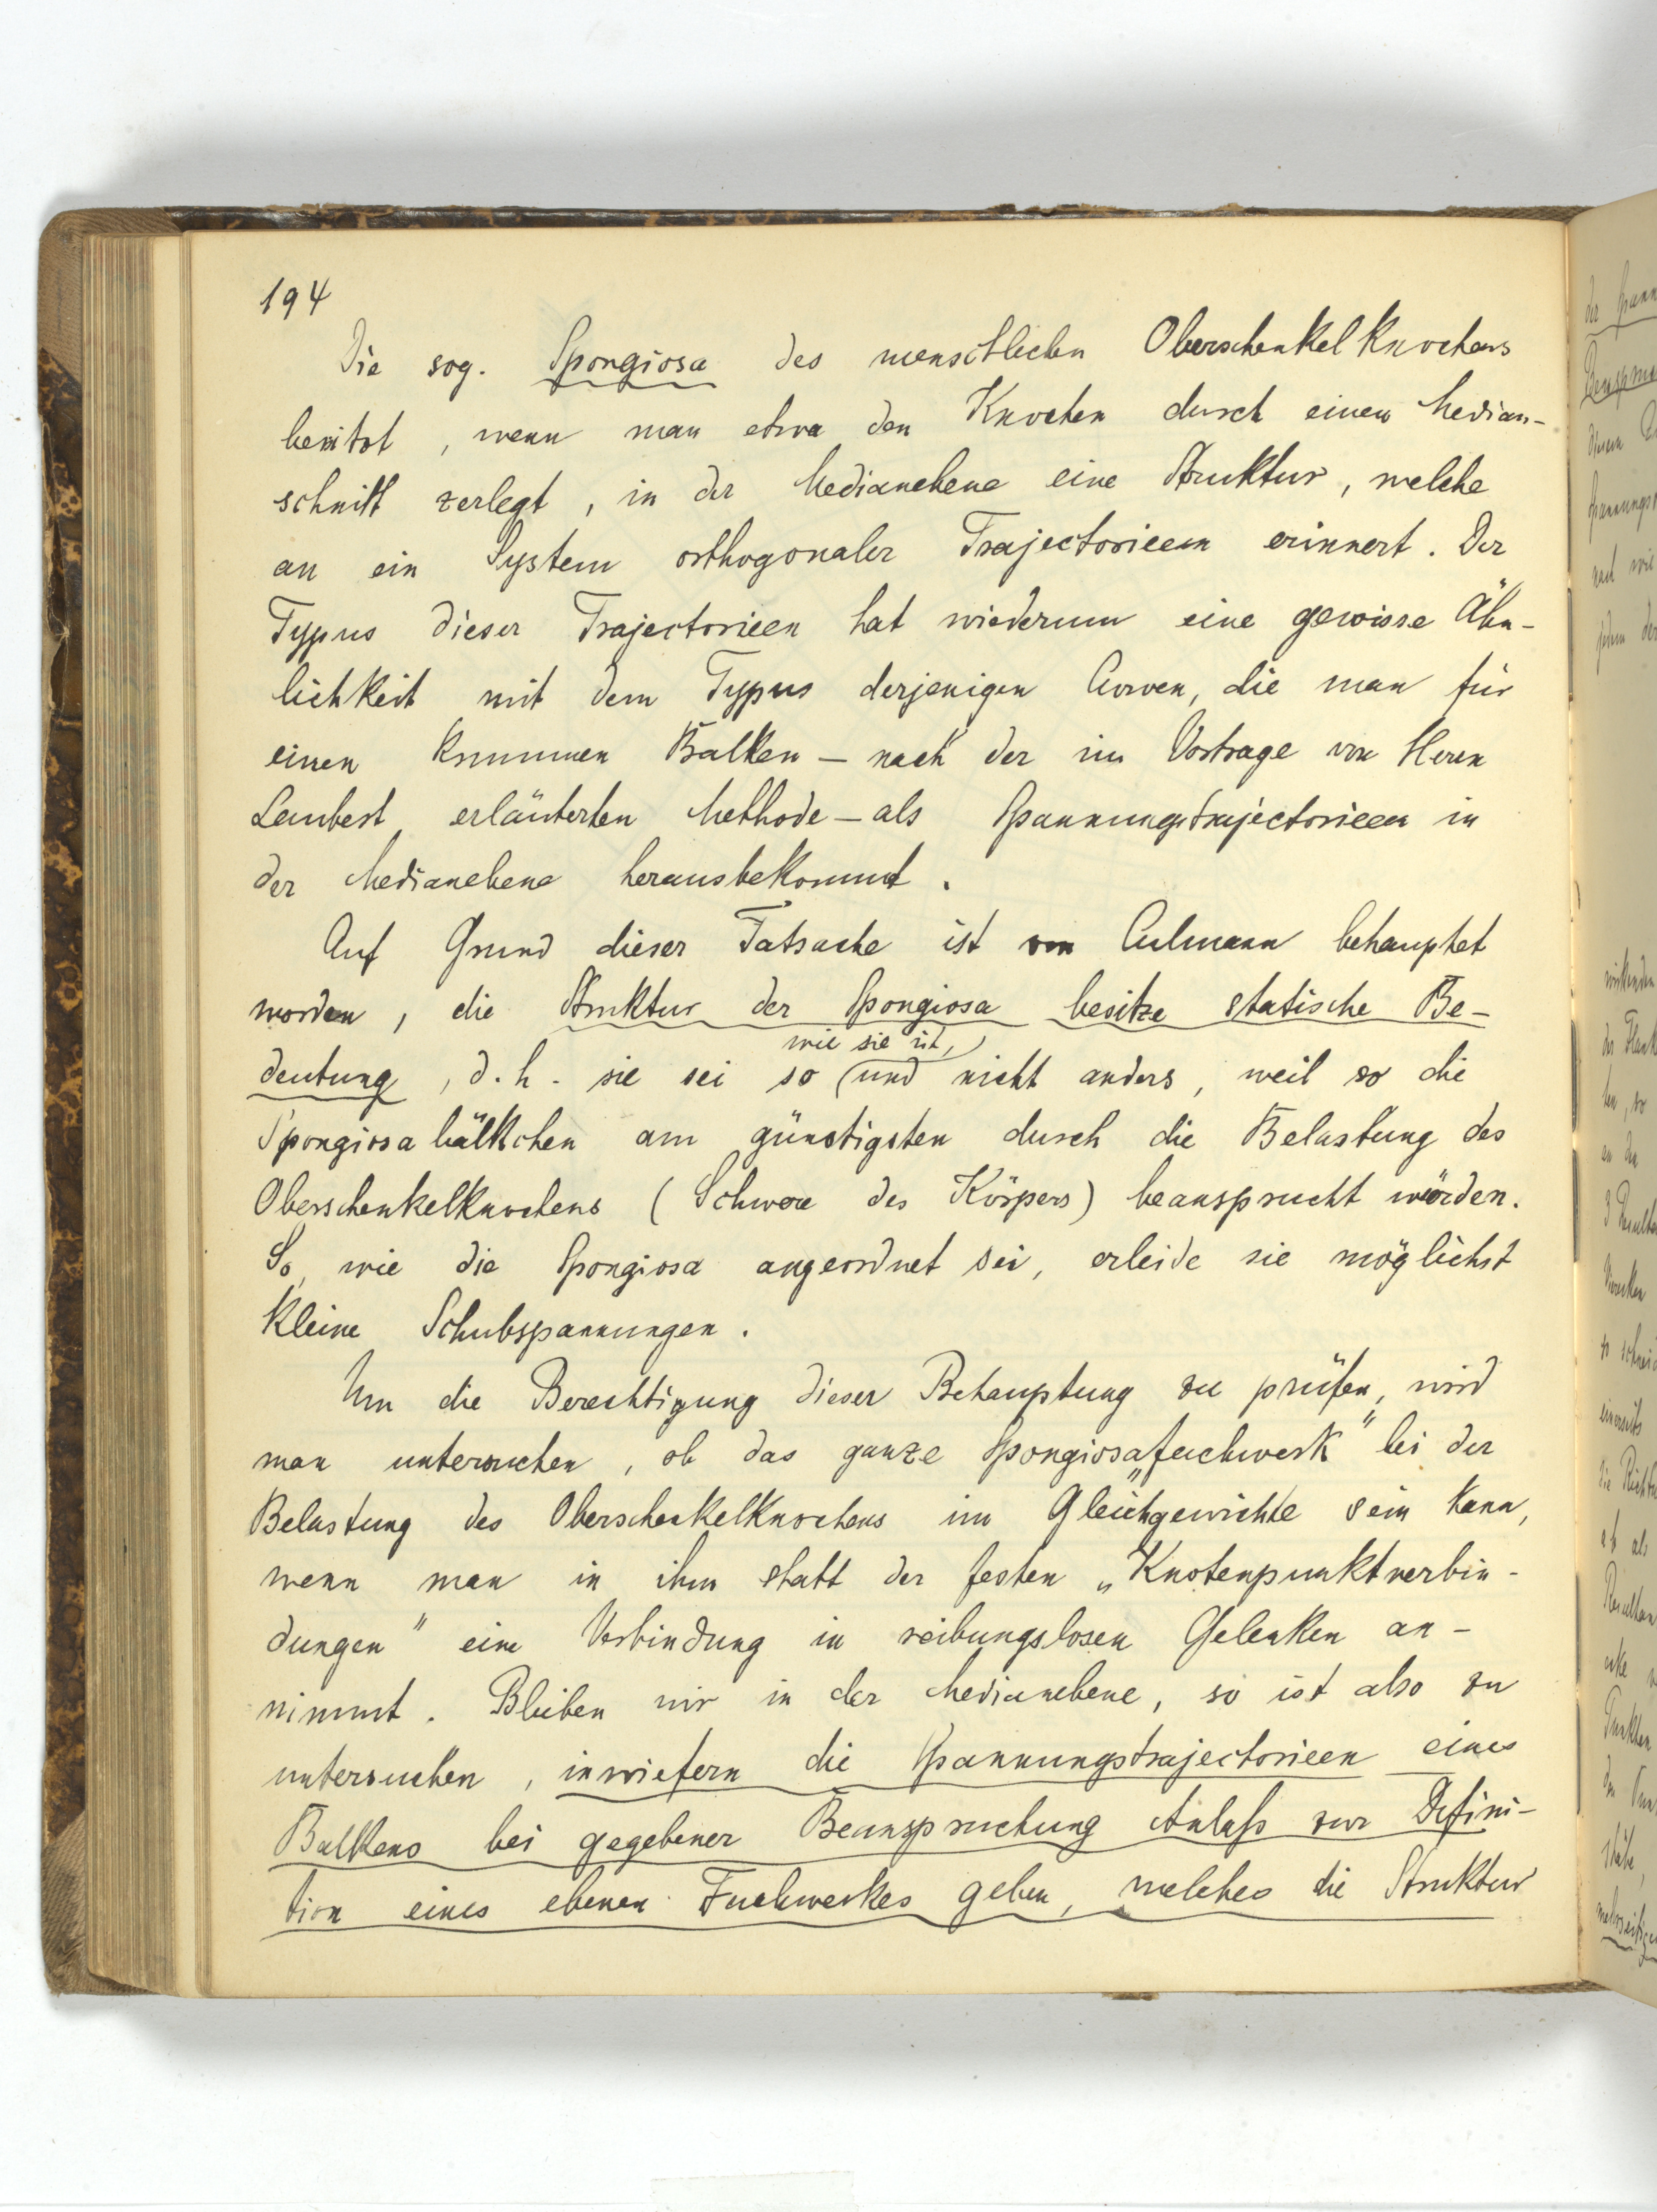 194
Die sog. Spongiosa des menschlichen Oberschenkelknochens
besitzt, wenn man etwa den Knochen durch einen Median-
schnitt zerlegt, in der Medianebene eine Struktur, welche
an ein System orthogonaler Trajectorieen erinnert. Der
Typus dieser Trajectorieen hat wiederum eine gewisse Ähn-
lichkeit mit dem Typus derjenigen Curven, die man für
einen krummen Balken – nach der im Vortrage von Herrn
erläuterten Methode – als Spannungstrajectorieen in
der Medianebene herausbekommt.
Auf Grund dieser Tatsache ist von Culmann behauptet
worden, die Struktur der Spongiosa besitze statische Be-
wie sie ist,
deutung, d.h. sie sei so (und nicht anders, weil so die
Spongiosabälkchen am günstigsten durch die Belastung des
Oberschenkelknochens (Schwere des Körpers) beansprucht würden.
So, wie die Spongiosa angeordnet sei, erleide sie möglichst
kleine Schubspannungen.
Um die Berechtigung dieser Behauptung zu prüfen, wird
man untersuchen, ob das ganze Spongiosa„fachwerk" bei der
Belastung des Oberschenkelknochens im Gleichgewichte sein kann,
wenn man in ihm statt der festen „Knotenpunktverbin-
dungen" eine Verbindung in reibungslosen Gelenken an-
nimmt. Bleiben wir in der Medianebene, so ist also zu
untersuchen, inwiefern die Spannungstrajectorieen eines
Balkens bei gegebener Beanspruchung Anlaß zur Defini-
tion eines ebenen Fachwerkes geben, welches die Struktur